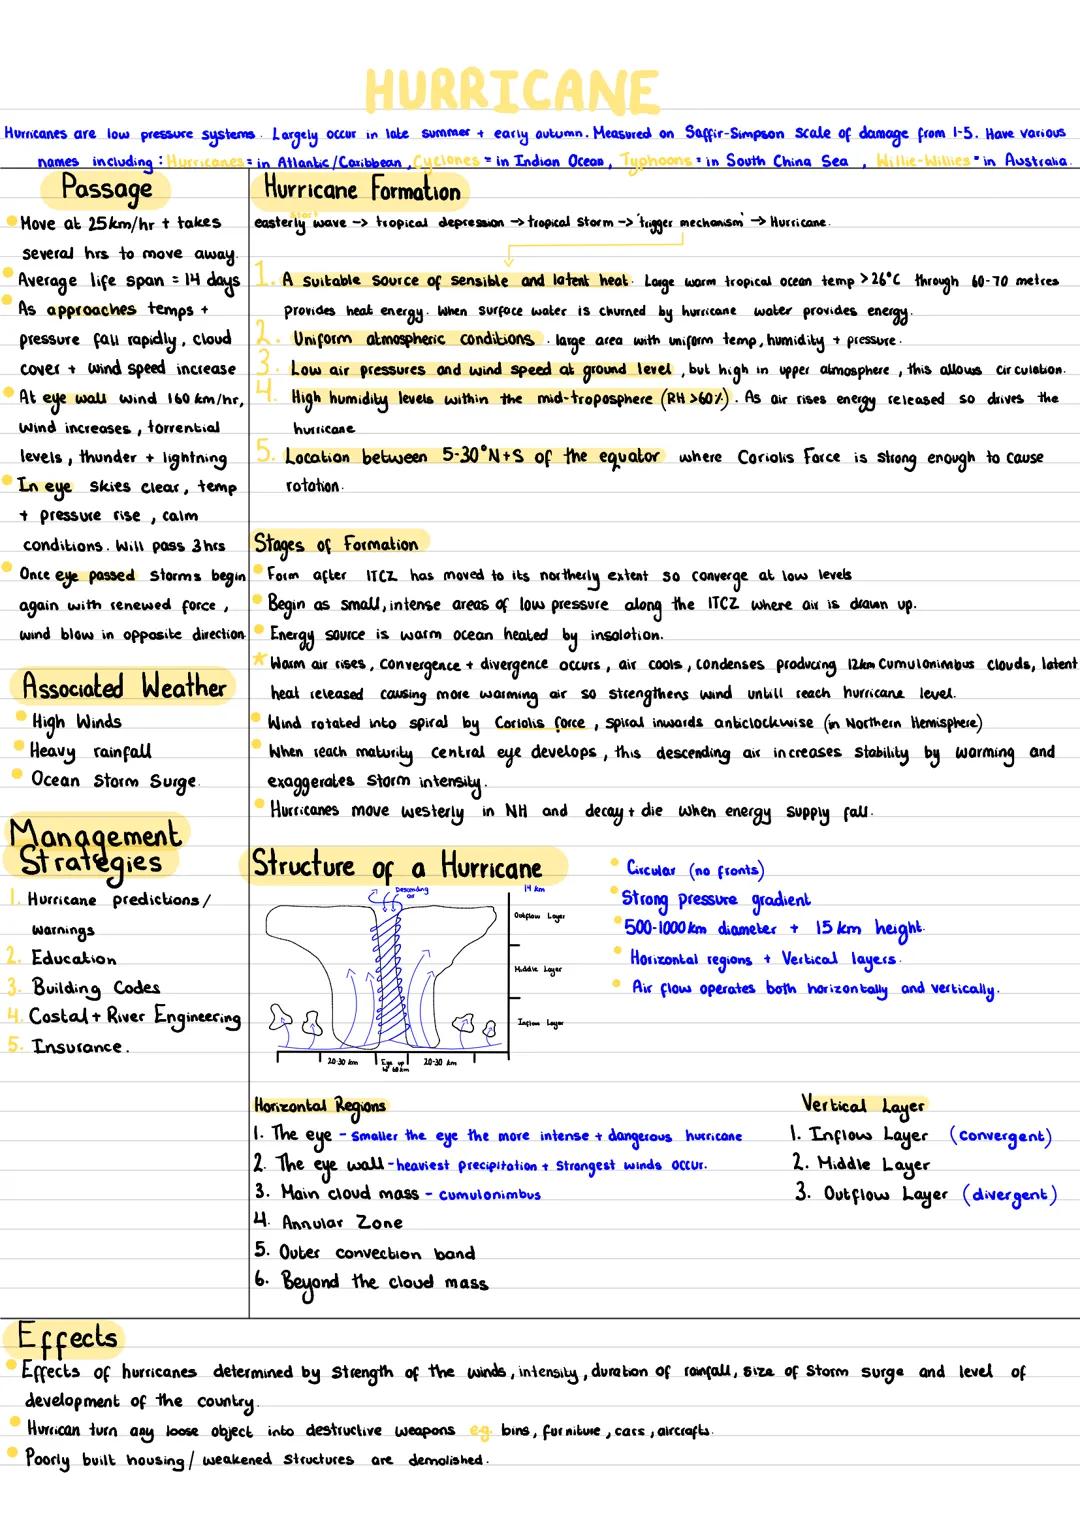 HURRICANE
Hurricanes are low pressure systems. Largely occur in late summer + early autumn. Measured on Saffir-Simpson scale of damage from 1-5. Have various
names including : Hurricanes = in Atlantic/Caribbean, Cyclones = in Indian Ocean, Typhoons = in South China Sea, Willie-Willies = in Australia.
Passage
• Move at 25km/hr + takes
several hrs to move away.
• Average life span = 14 days
• As approaches temps +
pressure fall rapidly, cloud
cover + wind speed increase
• At eye wall wind 160 km/hr,
wind increases, torrential
levels, thunder + lightning
• In eye skies clear, temp
+ pressure rise, calm
conditions. Will pass 3hrs
• Once eye passed storms begin
again with renewed force,
wind blow in opposite direction
Associated Weather
• High Winds
• Heavy rainfall
• Ocean Storm Surge.
Management
Strategies
1. Hurricane predictions/
warnings
2. Education
3. Building Codes
4. Costal + River Engineering
5. Insurance.
Hurricane Formation
start
easterly wave → tropical depression → tropical storm → 'trigger mechanism' → Hurricane.
1. A suitable source of sensible and latent heat. Large warm tropical ocean temp >26°C through 60-70 metres
provides heat energy. When surface water is churned by hurricane water provides energy.
2. Uniform atmospheric conditions. large area with uniform temp, humidity + pressure.
3. Low air pressures and wind speed at ground level, but high in upper atmosphere, this allows circulation.
4. High humidity levels within the mid-troposphere (RH >60%). As air rises energy released so drives the
hurricane
5. Location between 5-30°N+S of the equator where Coriolis Force is strong enough to cause
rotation.
Stages of Formation
• Form after ITCZ has moved to its northerly extent so converge at low levels
• Begin as small, intense areas of low pressure along the ITCZ where air is drawn up.
• Energy source is warm ocean heated by insolation.
* Warm air rises, convergence + divergence occurs, air cools, condenses producing 12km Cumulonimbus clouds, latent
heat released causing more warming air so strengthens wind untill reach hurricane level.
• Wind rotated into spiral by Coriolis force, spiral inwards anticlockwise (in Northern Hemisphere)
• When reach maturity central eye develops, this descending air increases stability by warming and
exaggerates storm intensity.
• Hurricanes move westerly in NH and decay + die when energy supply fall.
Structure of a Hurricane
Descending
air
14 km
Outflow Layer
Middle Layer
Inflow Layer
20-30 km
Eye up
to 60km
20-30 km
• Circular (no fronts)
• Strong pressure gradient
• 500-1000km diameter + 15km height.
• Horizontal regions + Vertical layers.
• Air flow operates both horizontally and vertically.
Horizontal Regions
1. The eye - smaller the eye the more intense + dangerous hurricane
2. The eye wall - heaviest precipitation + strongest winds occur.
3. Main cloud mass - cumulonimbus
4. Annular Zone
5. Outer convection band
6. Beyond the cloud mass
Vertical Layer
1. Inflow Layer (convergent)
2. Middle Layer
3. Outflow Layer (divergent)
Effects
• Effects of hurricanes determined by strength of the winds, intensity, duration of rainfall, size of storm surge and level of
development of the country.
• Hurrican turn any loose object into destructive weapons eg. bins, furniture, cars, aircrafts.
• Poorly built housing/ weakened structures are demolished.